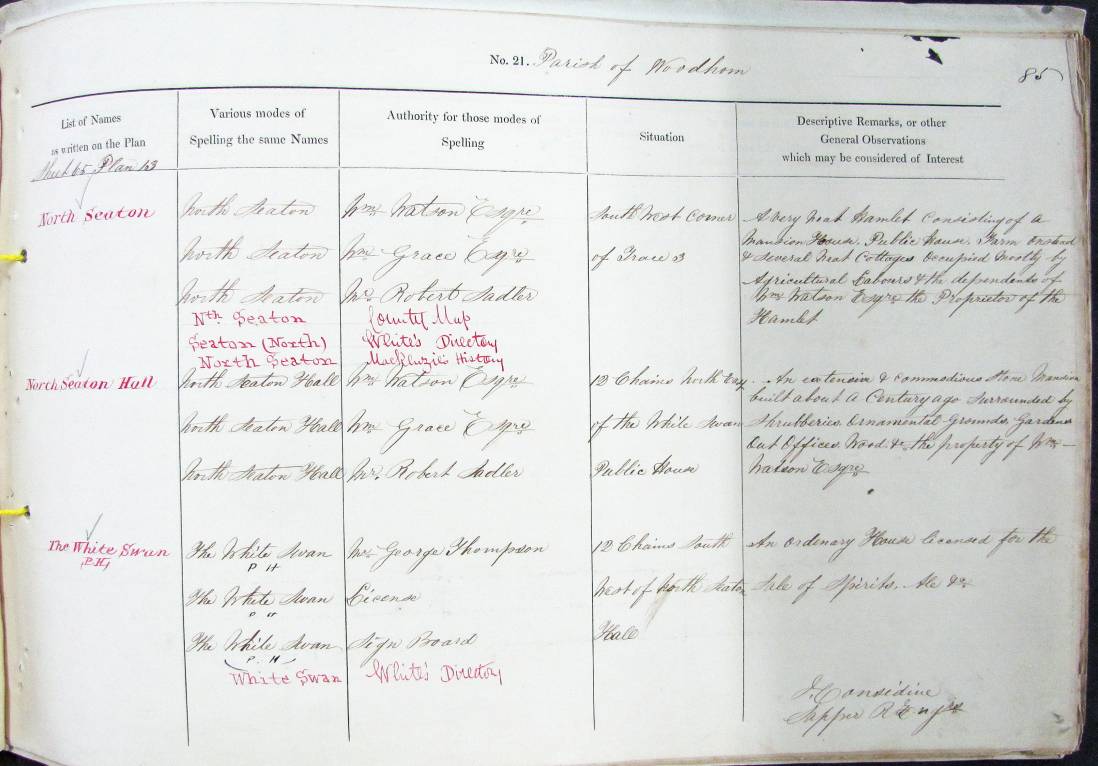 No. 21. Parish of Woodhorn
85
List of Names
as written on the Plan
Various modes of
Spelling the same Names
Authority for those modes of
Spelling
Situation
Descriptive Remarks, or other
General Observations
which may be considered of Interest
Sheet 65 Plan 13
North Seaton
North Seaton
Wm. Watson Esqre.
South West corner
A very neat Hamlet consisting of a
North Seaton
Wm. Grace Esqre.
of Trace 3
Mansion House, Public House, Farm Onstead
& several neat Cottages occupied mostly by
North Seaton
Mr. Robert Sadler
Agricultural Labours & the dependents of
Wm. Watson Esqre. the Proprietor of the
Hamlet
Nth. Seaton
County Map
Seaton (North)
White's Directory
North Seaton
MacKenzie's History
North Seaton Hall
North Seaton Hall
Wm. Watson Esqre.
12 Chains North East
An extensive & commodious stone Mansion
built about a Century ago surrounded by
North Seaton Hall
Wm. Grace Esqre.
of the White Swan
Shrubberies, Ornamental Grounds, Gardens
Out Offices, Wood &c. the property of Wm.
North Seaton Hall
Mr. Robert Sadler
Public House
Watson Esqre.
The White Swan
P.H.
The White Swan
P H
Mr. George Thompson
12 Chains South
An ordenary House licensed for the
The White Swan
P H
License
West of North Seaton
Sale of Spirits, Ale &c.
The White Swan
P. H
Sign Board
Hall
White Swan
White's Directory
J. Considine
Sapper R Engrs